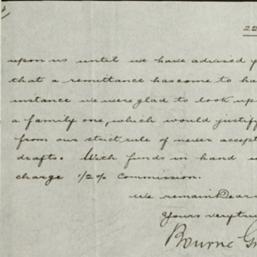 22
upon us until we have advised y
that a remittance has come to ha
instance we were glad to look up
a family one, which would justify
from our strict rule of never accept
drafts. With funds in hand w
charge 1/2% Commission.
We remain Dear
Yours very tru
Bourne Gr